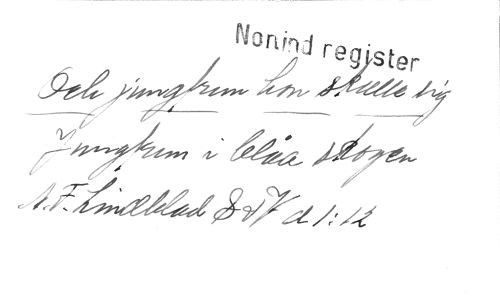 Nonind register
Och jungfrun hon skulle sig
Jungfrun i blåa skogen
A. F. Lindblad S & V d 1:12